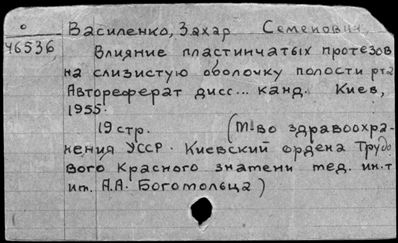 о
46536
Василенко, Захар Семенович,
Влияние пластинчатых протезов
на слизистую оболочку полости рта
Автореферат дисс... канд. Киев,
1955.
19 стр. (М-во здравоохра-
нения УССР. Киевский ордена Трудо
вого Красного знамени мед. ин.т
им. А.А. Богомольца)